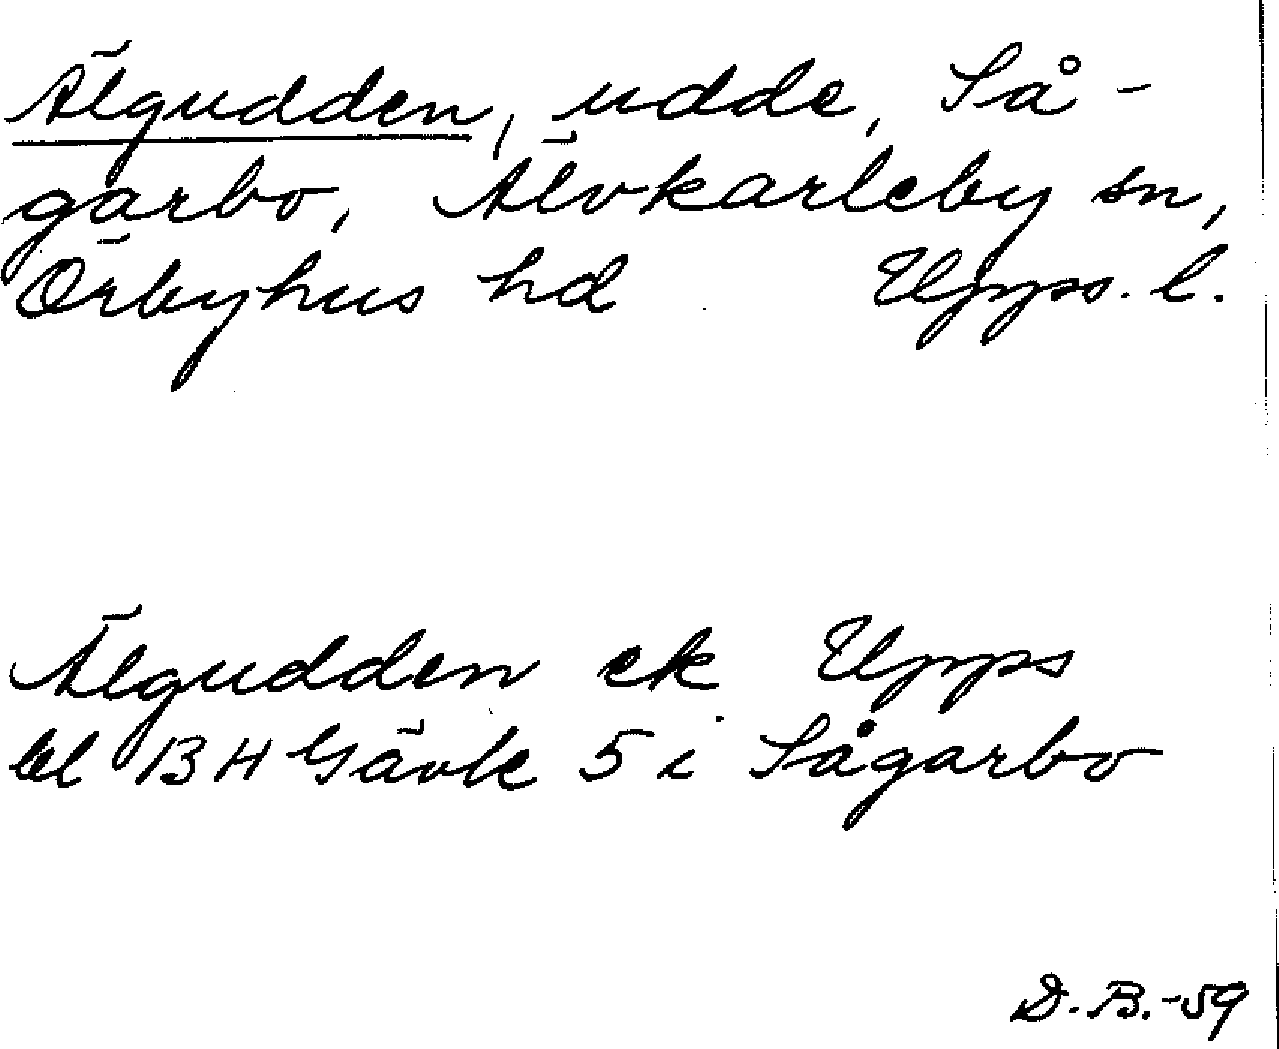 Älgudden, udde, Så-
garbo, Älvkarleby sn,
Örbyhus hd Upps. l.
Älgudden ek Upps
bl 13 H Gävle 5 i Sågarbo
D. B. -59